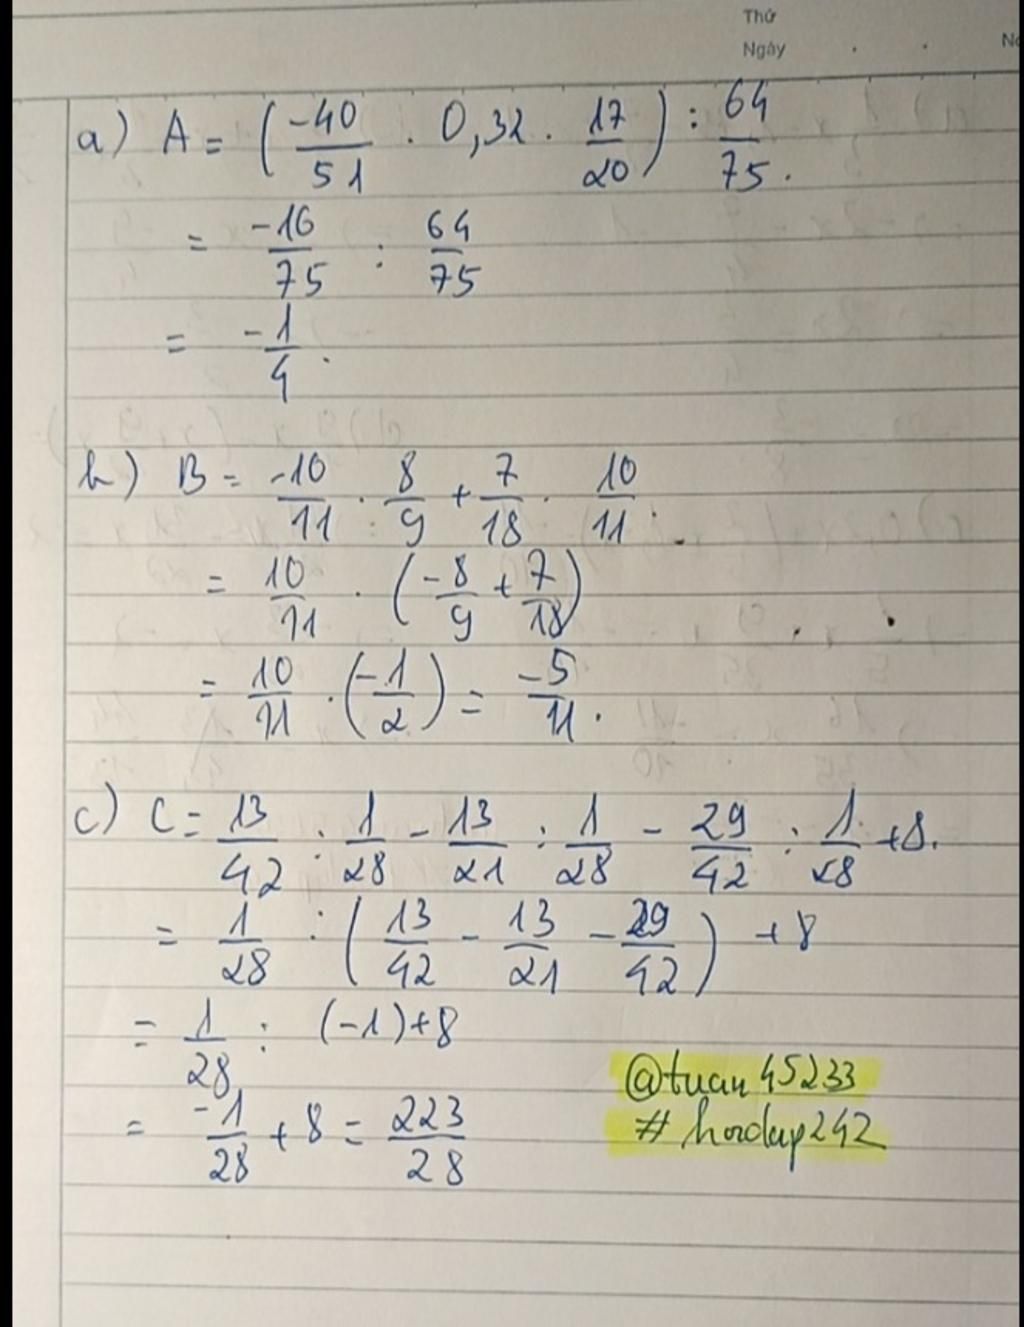 Thứ
Ngày
a) A = (-40/51 . 0,32 . 17/20) : 64/75.
= -16/75 : 64/75
= -1/4.
b) B = -10/11 . 8/9 + 7/18 . 10/11.
= 10/11 . (-8/9 + 7/18)
= 10/11 . (-1/2) = -5/11.
c) C = 13/42 : 1/28 - 13/21 : 1/28 - 29/42 : 1/28 + 8.
= 1/28 : (13/42 - 13/21 - 29/42) + 8
= 1/28 : (-1) + 8
= -1/28 + 8 = 223/28
@tuan45233